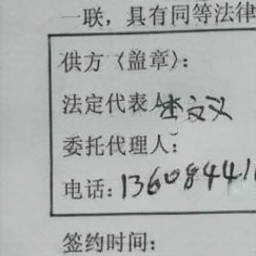 一联，具有同等法律
供方（盖章）：
法定代表人
委托代理人：
电话：136084416
签约时间：